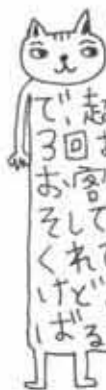 で、起
3回お
お客
そして
くれて
けど
ばる